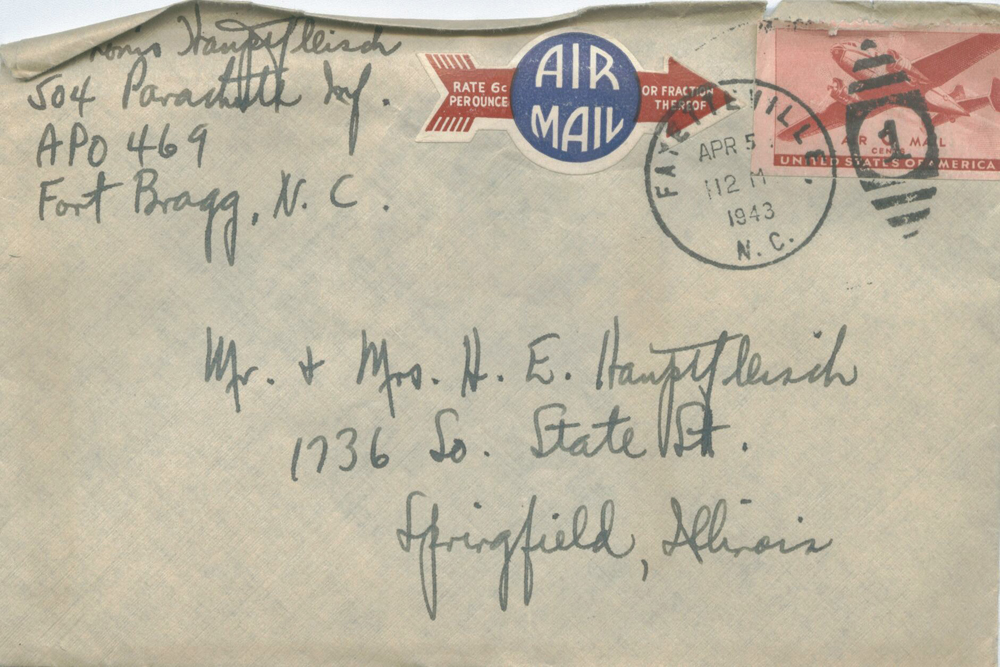 Hauptfleisch
504 Parachute Inf.
APO 469
Fort Bragg, N. C.
RATE 6¢
PER OUNCE
AIR
MAIL
OR FRACTION
THEREOF
FAYETTEVILLE
APR 5
12 M
1943
N. C.
1
AIR MAIL
CENTS
UNITED STATES OF AMERICA
Mr. + Mrs. H. E. Hauptfleisch
1736 So. State St.
Springfield, Illinois